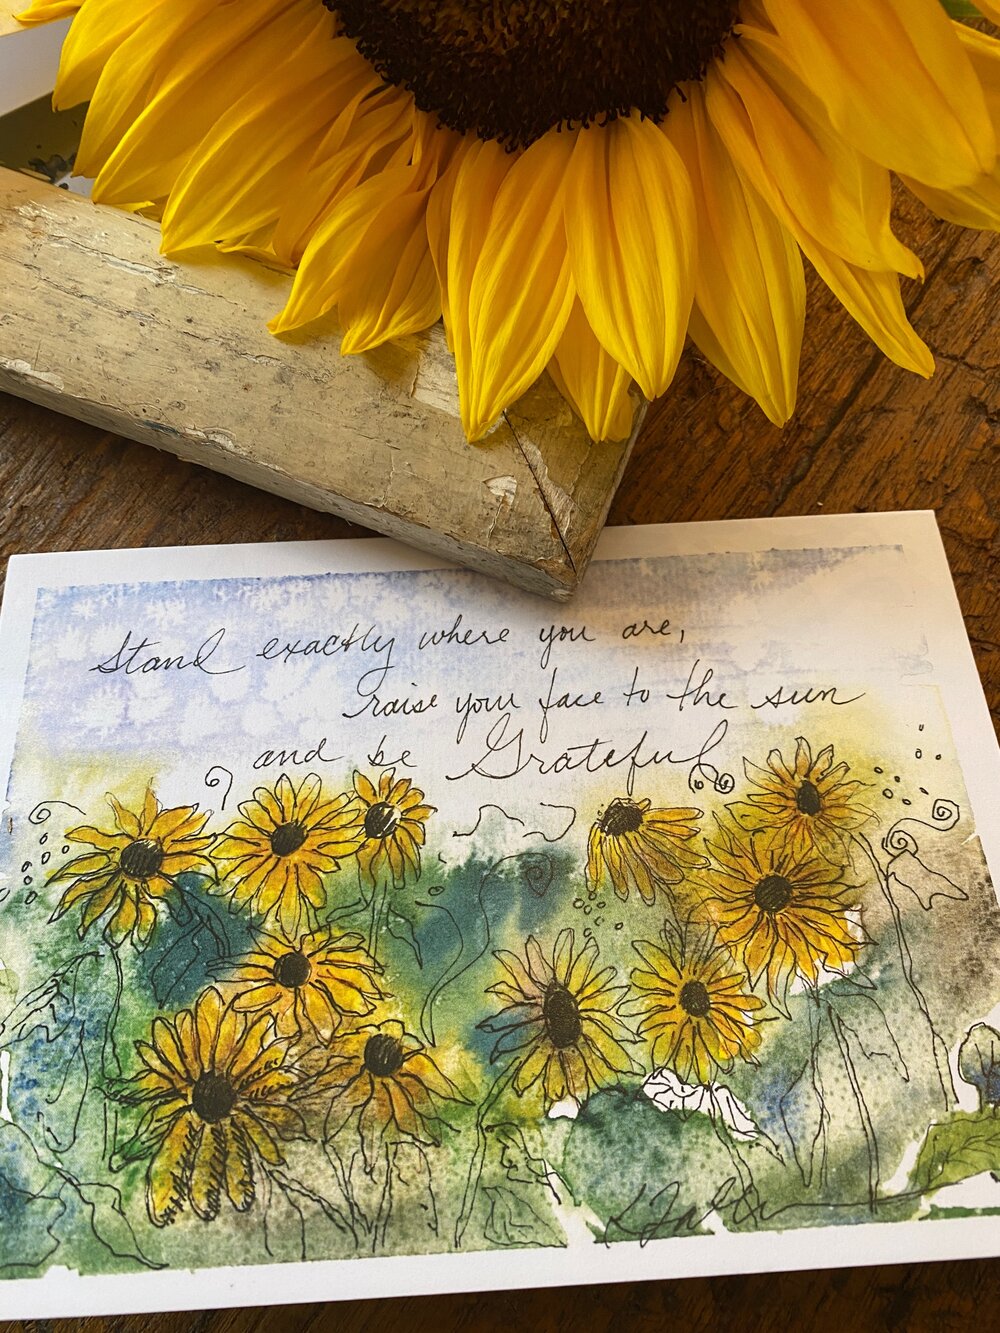 Stand exactly where you are,
raise your face to the sun
and be Grateful